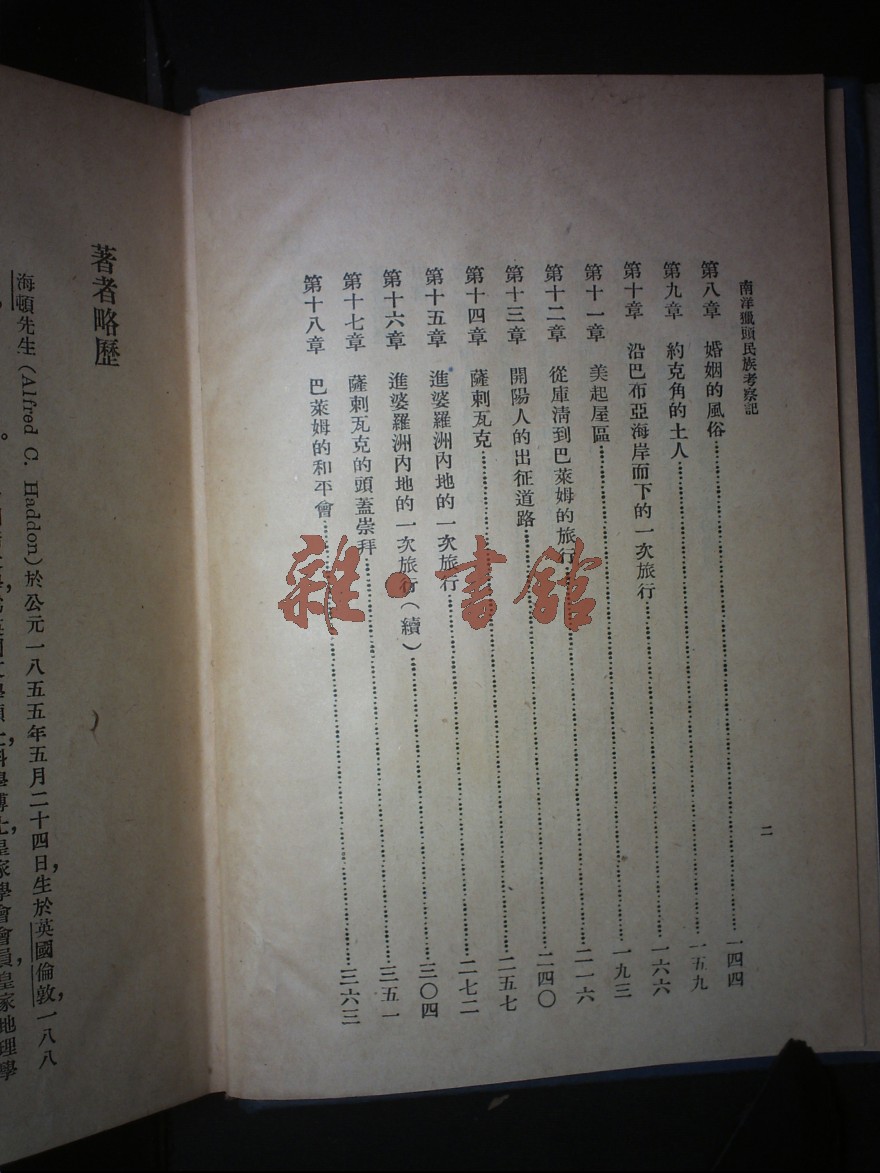 南洋獵頭民族考察記
二
第八章 婚姻的風俗……一四四
第九章 約克角的土人……一五九
第十章 沿巴布亞海岸而下的一次旅行……一六六
第十一章 美起屋區……一九三
第十二章 從庫淸到巴萊姆的旅行……二一六
第十三章 開陽人的出征道路……二四〇
第十四章 薩剌瓦克……二五七
第十五章 進婆羅洲內地的一次旅行……二七二
第十六章 進婆羅洲內地的一次旅行（續）……三〇四
第十七章 薩剌瓦克的頭蓋崇拜……三五一
第十八章 巴萊姆的和平會……三六三
雜·書館
著者略歷
海頓先生（Alfred C. Haddon）於公元一八五五年五月二十四日生於英國倫敦，一八八
科學博士，皇家學會會員，皇家地理學